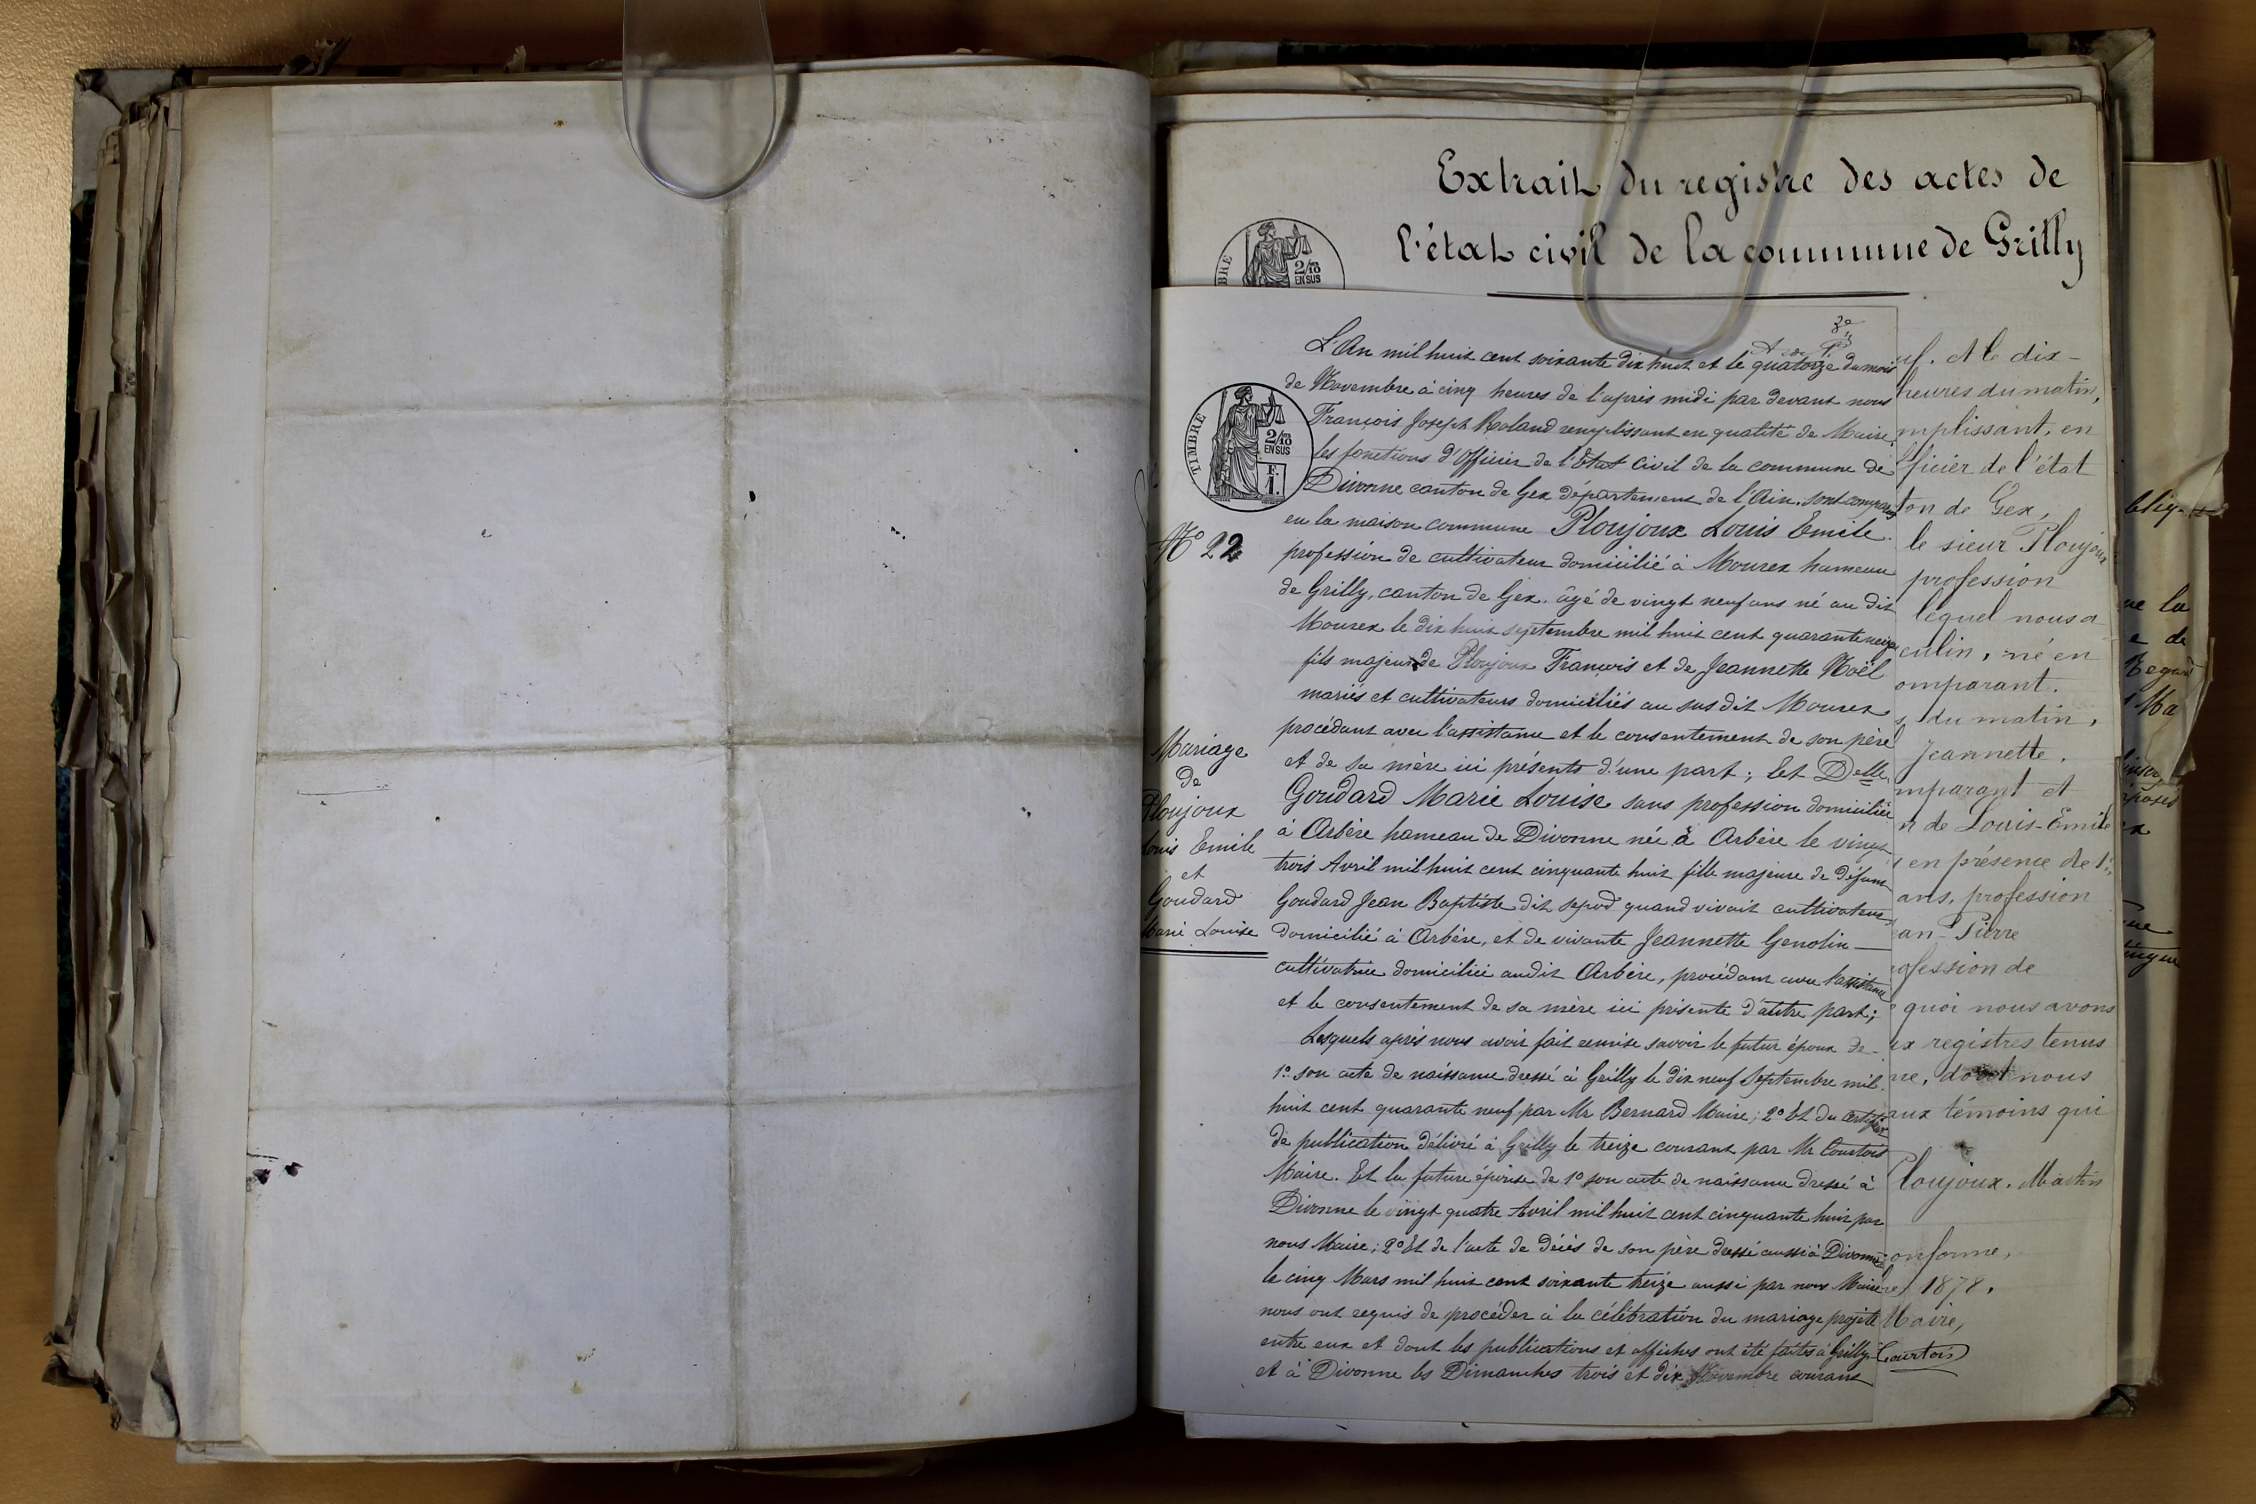 Extrait du registre des actes de
l'état civil de la commune de Grilly
TIMBRE
2/10
EN SUS
L'An mil huit cent soixante dix huit et le quatorze du mois
de Novembre à cinq heures de l'après midi par devant nous
François Joseph Roland remplissant en qualité de Maire
les fonctions d'Officier de l'Etat Civil de la commune de
Divonne canton de Gex département de l'Ain, sont comparus
en la maison commune Ploujoux Louis Emile
profession de cultivateur domicilié à Mourex hameau
de Grilly, canton de Gex, âgé de vingt neuf ans né au dit
Mourex le dix huit septembre mil huit cent quarante neuf
fils majeur de Ploujoux François et de Jeannette Noël
mariés et cultivateurs domiciliés au sus dit Mourex
procédant avec l'assistance et le consentement de son père
et de sa mère ici présents d'une part; Et Delle
Goudard Marie Louise sans profession domiciliée
à Arbère hameau de Divonne née à Arbère le vingt
trois Avril mil huit cent cinquante huit fille majeure de défunt
Goudard Jean Baptiste dit sepod quand vivait cultivateur
domicilié à Arbère, et de vivante Jeannette Genolin
cultivatrice domiciliée audit Arbère, procédant avec l'assistance
et le consentement de sa mère ici présente d'autre part;
Lesquels après nous avoir fait remise savoir le futur époux de
1° son acte de naissance dressé à Grilly le dix neuf Septembre mil
huit cent quarante neuf par Mr Bernard Maire; 2° Et du certificat
de publication délivré à Grilly le treize courant par Mr Courtois
Maire. Et la future épouse de 1° son acte de naissance dressé à
Divonne le vingt quatre Avril mil huit cent cinquante huit par
nous Maire; 2° Et de l'acte de décès de son père dressé aussi à Divonne
le cinq Mars mil huit cent soixante treize aussi par nous Maire
nous ont requis de procéder à la célébration du mariage projeté
entre eux et dont les publications et affiches ont été faites à Grilly
et à Divonne les Dimanches trois et dix Novembre courant
TIMBRE
2/10
EN SUS
F.
1.
N° 22
Mariage
de
Ploujoux
Louis Emile
et
Goudard
Marie Louise
uf. et le dix-
heures du matin,
mplissant, en
fficier de l'état
ton de Gex,
le sieur Ploujoux
profession
lequel nous a
culin, né en
omparant.
s, du matin,
Jeannette,
mparant et
n de Louis-Emile
en présence de 1°
ans, profession
ean-Pierre
ofession de
quoi nous avons
ux registres tenus
ne, dont nous
aux témoins qui
Ploujoux. Martin
onforme,
1878.
Maire,
Courtois
ue la
e de
Regard
Ma